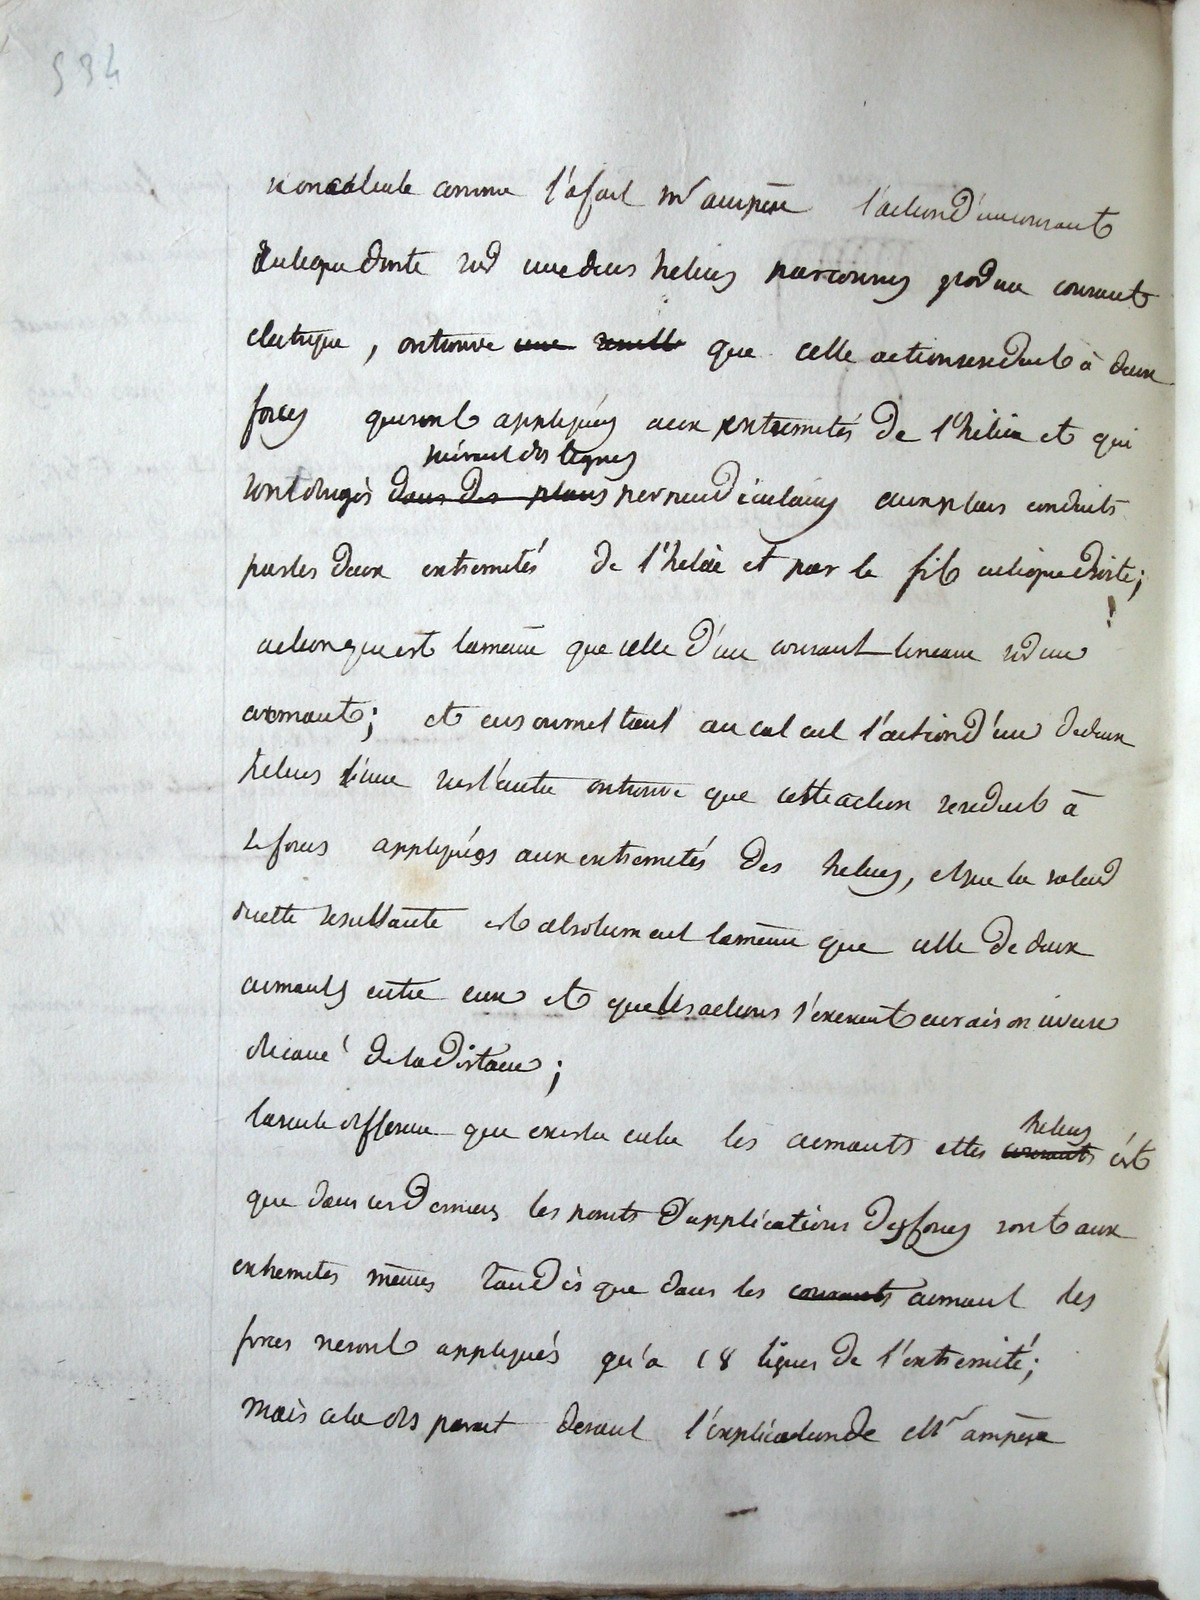 534
si on calcule comme l'a fait mr ampère l'action d'un courant
electrique, on trouve une que cette action se reduit à deux
forces qui sont appliquées aux extremités de l'hélice et qui
suivant des lignes
sont dirigés dans des plans perpendiculaires aux plans conduits
par les deux extremités de l'hélice et par le fil
action qui est la même que celle d'un courant lineaire sur un
aimant; et en soumettant au calcul l'action d'une de deux
helices l'une sur l'autre on trouve que cette action se reduit à
4 forces appliquées aux extremités des helices, et que la valeur
de cette resultante est absolument la même que celle de deux
aimants entre eux et que les actions s'exercent en raison inverse
du carré de la distance;
la seule difference qui existe entre les aimants et les courants est
helices
que dans ces derniers les points d'applications des forces sont aux
extremites mêmes tandis que dans les courants aimant les
forces ne sont appliqués qu'a 18 lignes de l'extremité;
mais cela disparait devant l'explication de Mr ampère